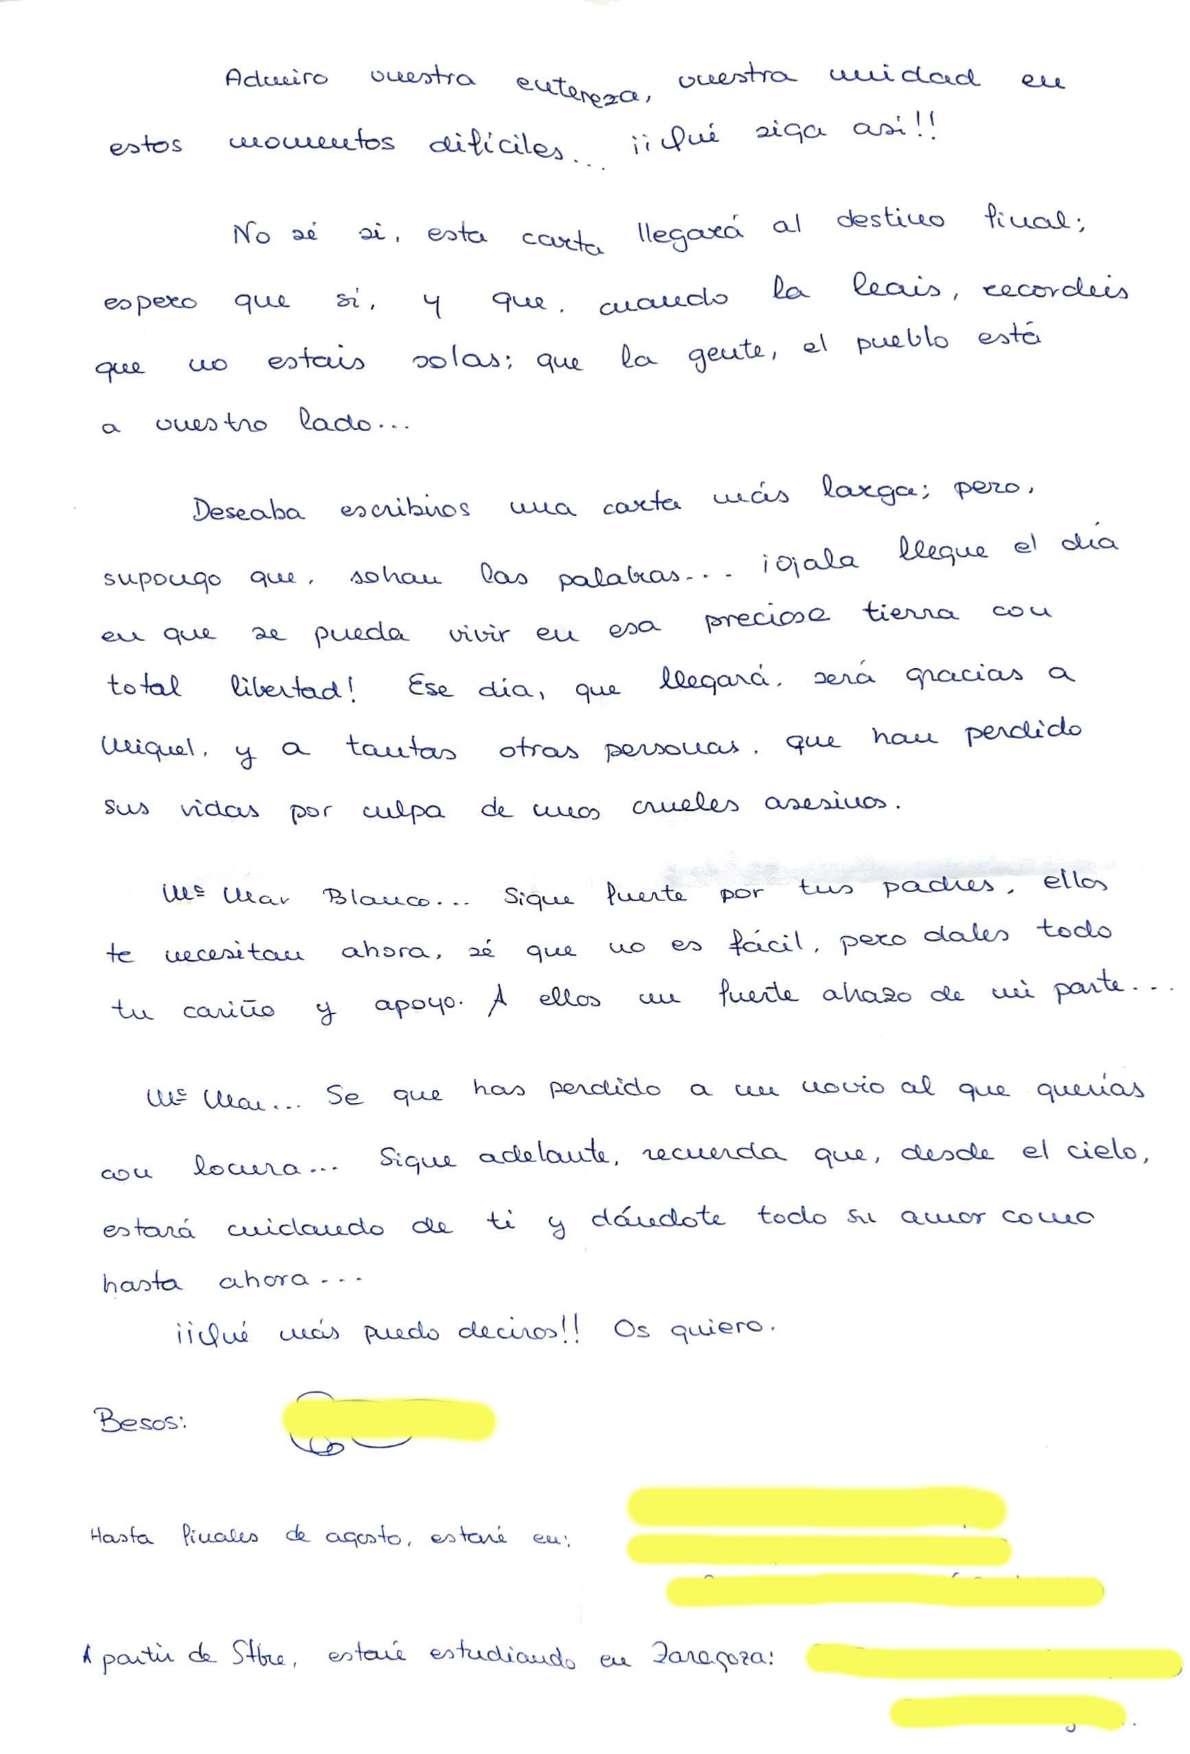 Admiro vuestra entereza, vuestra unidad en
estos momentos difíciles... ¡¡Qué siga así!!
No sé si, esta carta llegará al destino final;
espero que si, y que, cuando la leais, recordeis
que no estais solas; que la gente, el pueblo está
a vuestro lado...
Deseaba escribiros una carta más larga; pero,
supongo que, sobran las palabras... ¡Ojala llegue el día
en que se pueda vivir en esa preciosa tierra con
total libertad! Ese día, que llegará, será gracias a
Miguel, y a tantas otras personas, que han perdido
sus vidas por culpa de unos crueles asesinos.
Mª Mar Blanco... Sigue fuerte por tus padres, ellos
te necesitan ahora, sé que no es fácil, pero dales todo
tu cariño y apoyo. A ellos un fuerte abrazo de mi parte...
Mª Mar... Se que has perdido a un novio al que querías
con locura... Sigue adelante, recuerda que, desde el cielo,
estará cuidando de ti y dándote todo su amor como
hasta ahora...
¡¡Qué más puedo deciros!! Os quiero.
Besos:
Hasta finales de agosto, estaré en:
A partir de Stbre, estaré estudiando en Zaragoza: